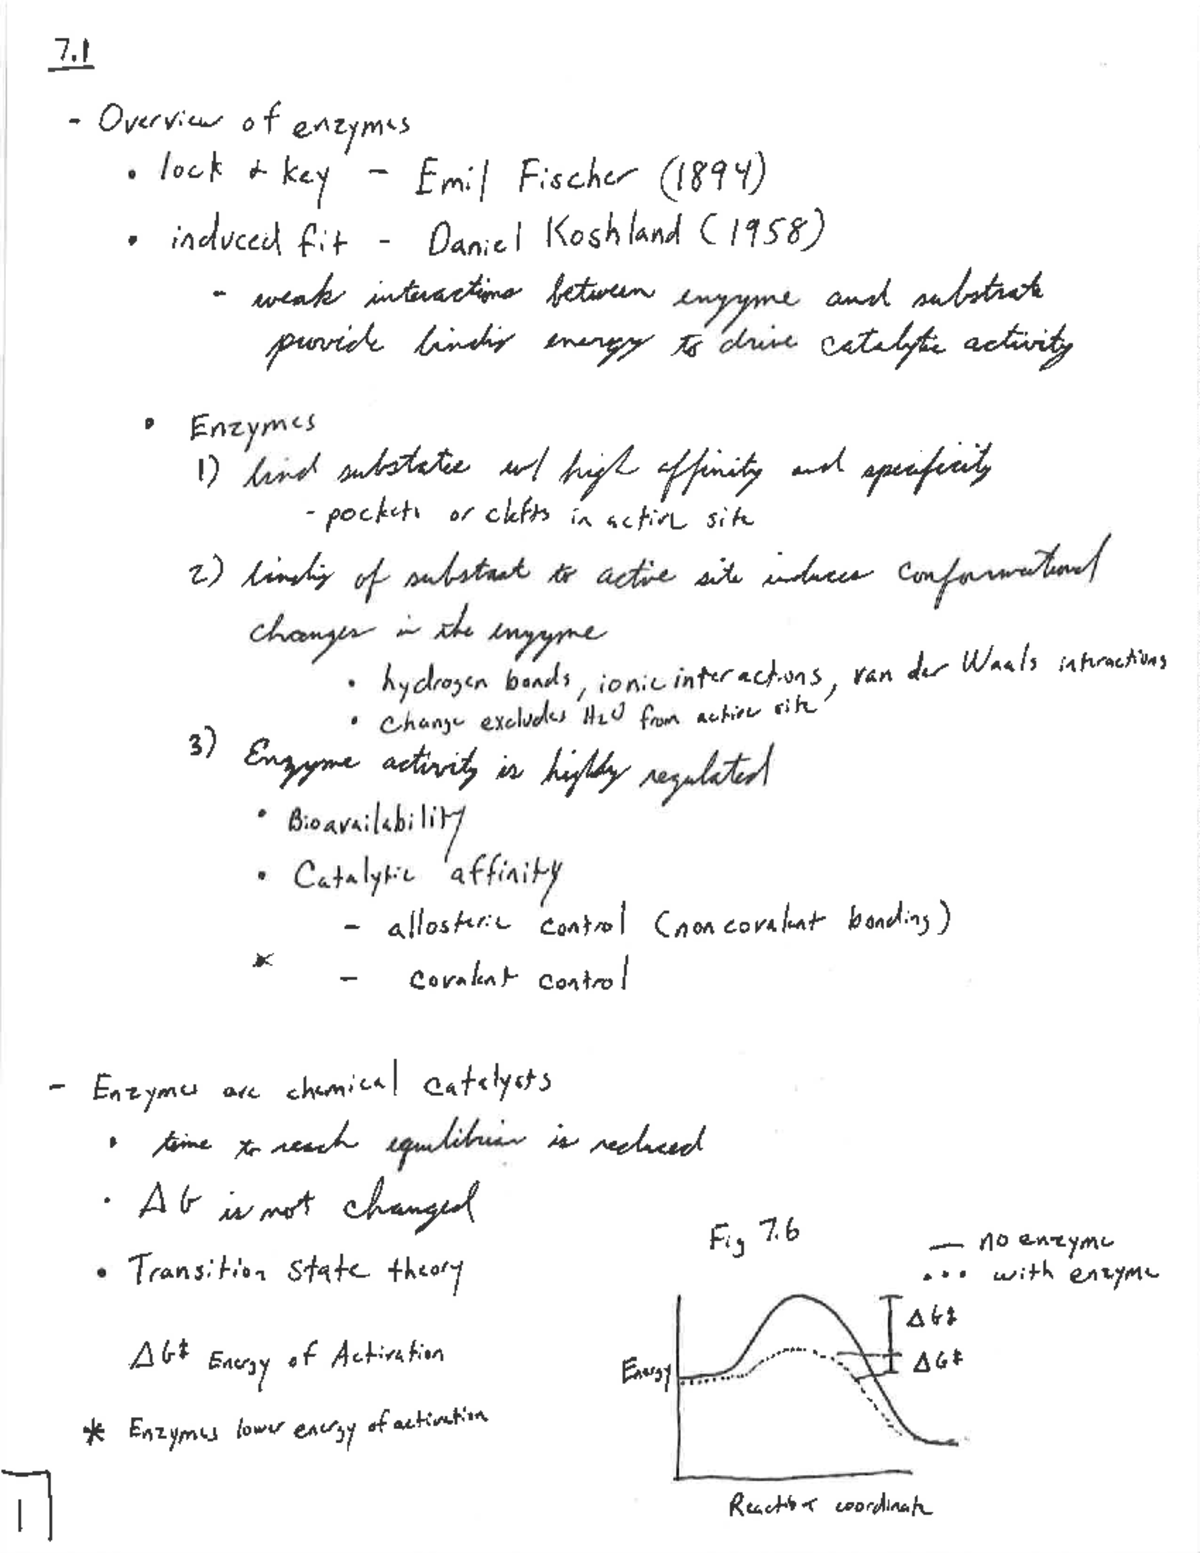 7.1
- Overview of enzymes
• lock & key - Emil Fischer (1894)
• induced fit - Daniel Koshland (1958)
- weak interactions between enzyme and substrate
provide binding energy to drive catalytic activity
• Enzymes
1) bind substrates w/ high affinity and specificity
- pockets or clefts in active site
2) binding of substrate to active site induces conformational
changes in the enzyme
• hydrogen bonds, ionic interactions, van der Waals interactions
• change excludes H2O from active site
3) Enzyme activity is highly regulated
• Bioavailability
• Catalytic affinity
- allosteric control (noncovalent bonding)
* - covalent control
- Enzymes are chemical catalysts
• time to reach equilibrium is reduced
• ΔG is not changed
• Transition state theory
ΔG‡ Energy of Activation
* Enzymes lower energy of activation
Fig 7.6
— no enzyme
••• with enzyme
ΔG‡
ΔG‡
Energy
Reaction coordinate
1